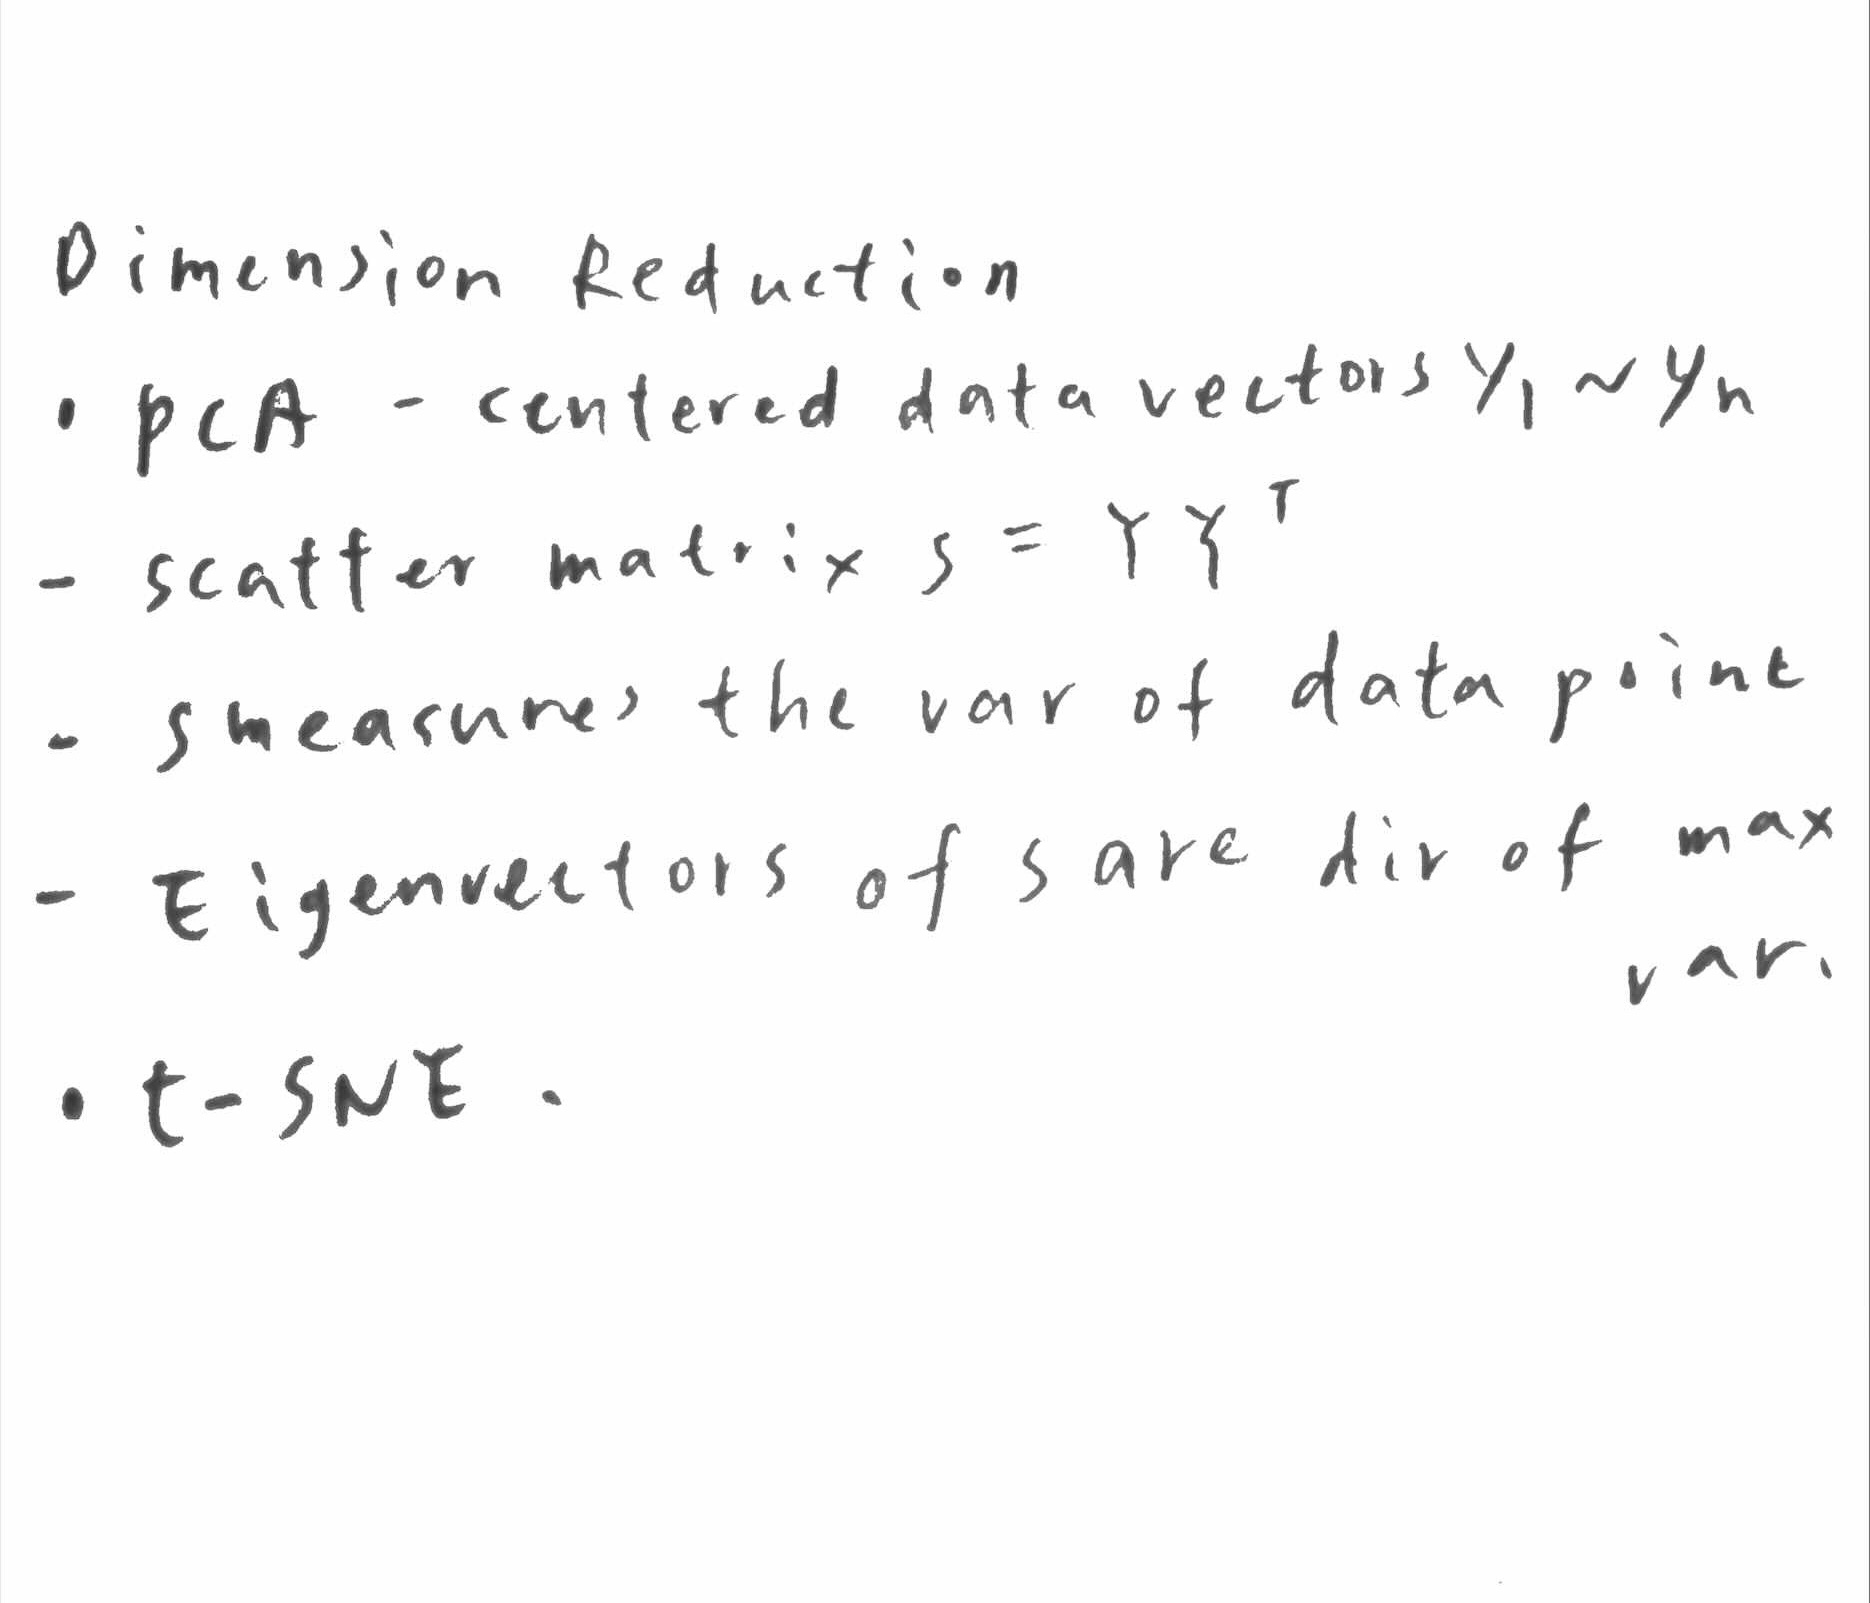 Dimension Reduction
• PCA - centered data vectors y₁ ~ yₙ
- scatter matrix s = Y Yᵀ
- s measures the var of data point
- Eigenvectors of s are dir of max
var.
• t-SNE.